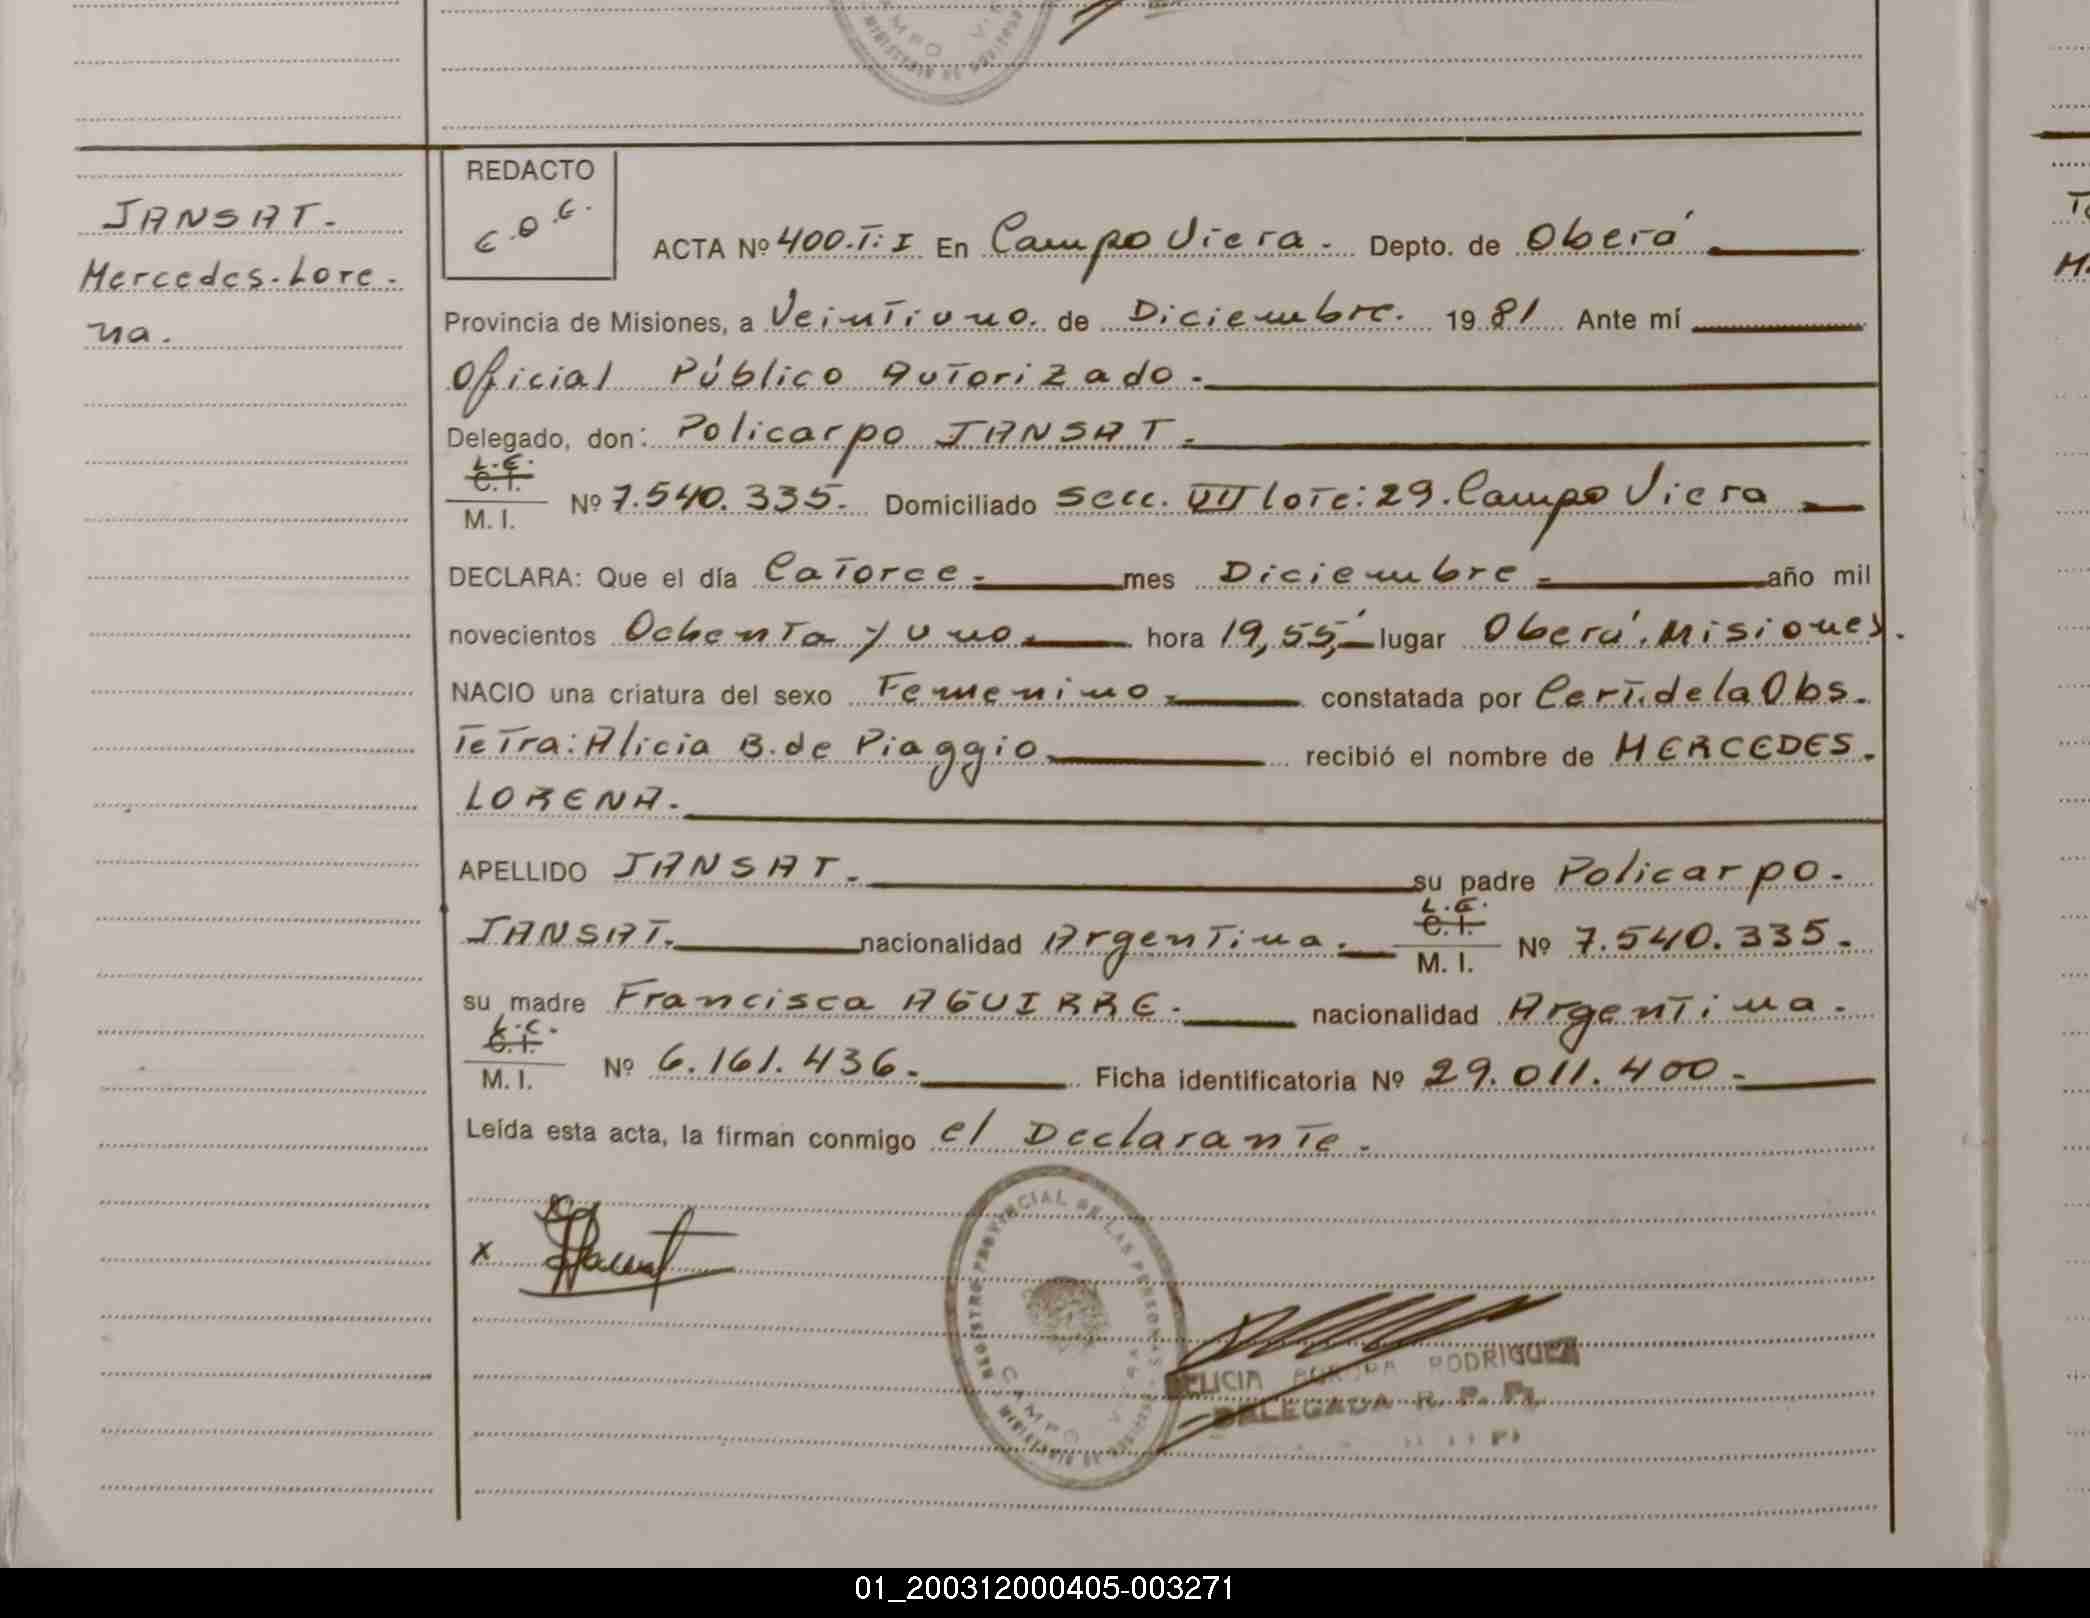 JANSAT.
Mercedes.Lore-
na.
REDACTO
ACTA Nº 400.T:I En Campo Viera. Depto. de Oberá
Provincia de Misiones, a Veintiuno. de Diciembre. 1981 Ante mí
Oficial Público Autorizado.
Delegado, don: Policarpo JANSAT.
L.E.
C.I.
M. I. Nº 7.540.335. Domiciliado Secc. VII lote:29. Campo Viera
DECLARA: Que el día Catorce. mes Diciembre. año mil
novecientos Ochenta y uno. hora 19,55, lugar Oberá, Misiones.
NACIO una criatura del sexo Femenino. constatada por Cert. de la Obs.
Tetra: Alicia B. de Piaggio recibió el nombre de MERCEDES.
LORENA.
APELLIDO JANSAT. su padre Policarpo.
JANSAT. nacionalidad Argentina.
L.E.
C.I.
M. I. Nº 7.540.335.
su madre Francisca AGUIRRE. nacionalidad Argentina.
L.C.
C.I.
M. I. Nº 6.161.436. Ficha identificatoria Nº 29.011.400.
Leída esta acta, la firman conmigo el Declarante.
x
REGISTRO PROVINCIAL DE LAS PERSONAS
CAMPO
RODRIGUEZ
DELEGADA R. P. P.
01_200312000405-003271